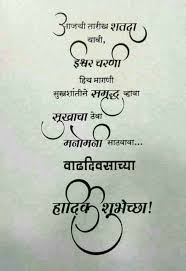 आजची तारीख शतदा
यावी,
ईश्वर चरणी
हिच मागणी
सुखशांतीने समृद्ध व्हावा
सुखाचा ठेवा
मनोमनी साठवावा...
वाढदिवसाच्या
हार्दिक शुभेच्छा!